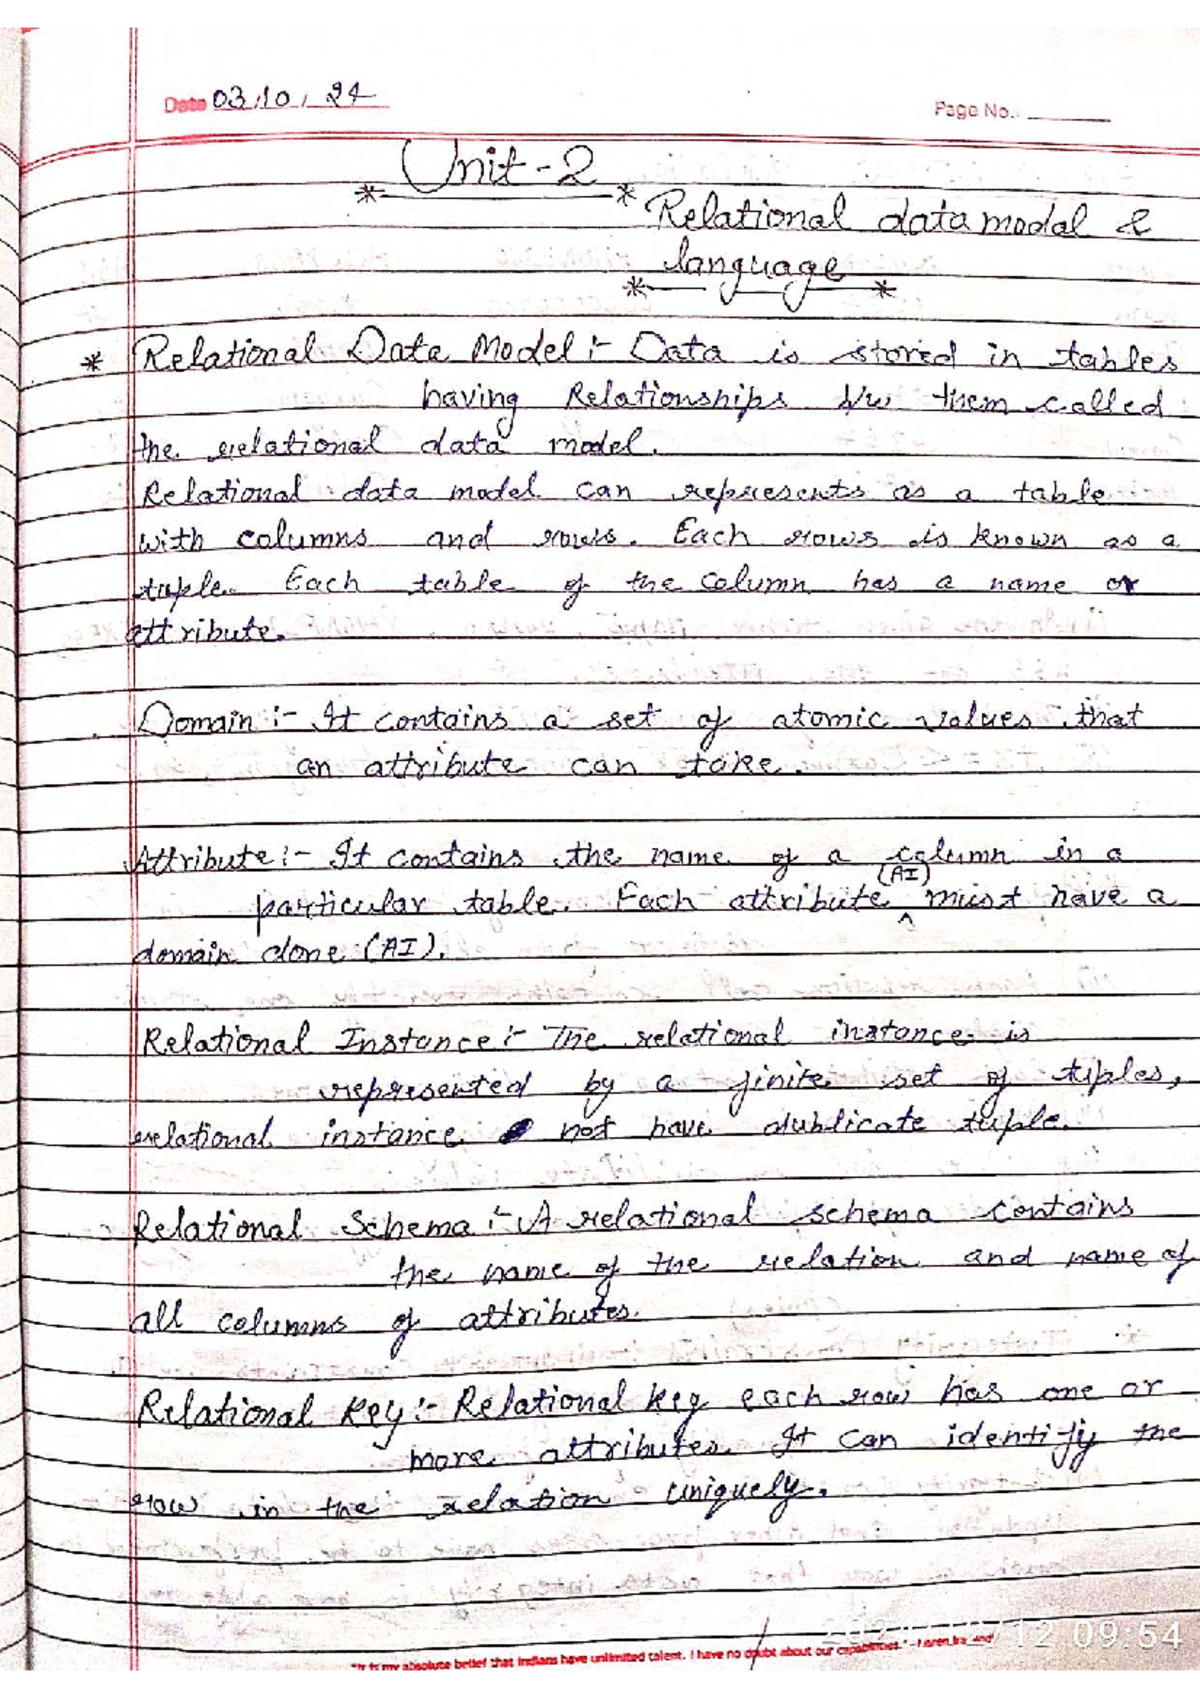 Date 03/10/24
Page No.
Unit-2
Relational data modal &
language
* Relational Data Model :- Data is stored in tables
having Relationships b/w them called
the relational data model.
Relational data model can represents as a table
with columns and rows. Each rows is known as a
tuple. Each table of the column has a name or
attribute.
Domain :- It contains a set of atomic values that
an attribute can take.
Attribute :- It contains the name of a column in a
particular table. Each attribute (AI) must have a
domain done (AI).
Relational Instance :- The relational instance is
represented by a finite set of tuples,
relational instance not have dublicate tuple.
Relational Schema :- A relational schema contains
the name of the relation and name of
all columns of attributes.
Relational Key :- Relational key each row has one or
more attributes. It can identify the
row in the relation uniquely.
"It is my absolute belief that Indians have unlimited talent. I have no doubt about our capabilities."
12/12 09:54